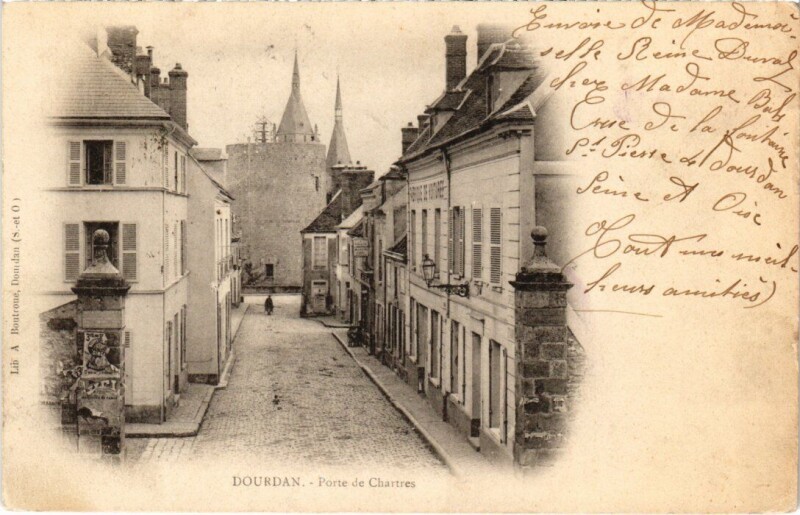 Envoie de Mademoi-
selle Reine Duval
chez Madame
de la fontaine
St Pierre à Dourdan
Seine et Oise
(Tout mes meil-
leurs amitiés)
FABRIQUE DE
Lib A Boutroue, Dourdan (S.-et O)
DOURDAN. - Porte de Chartres